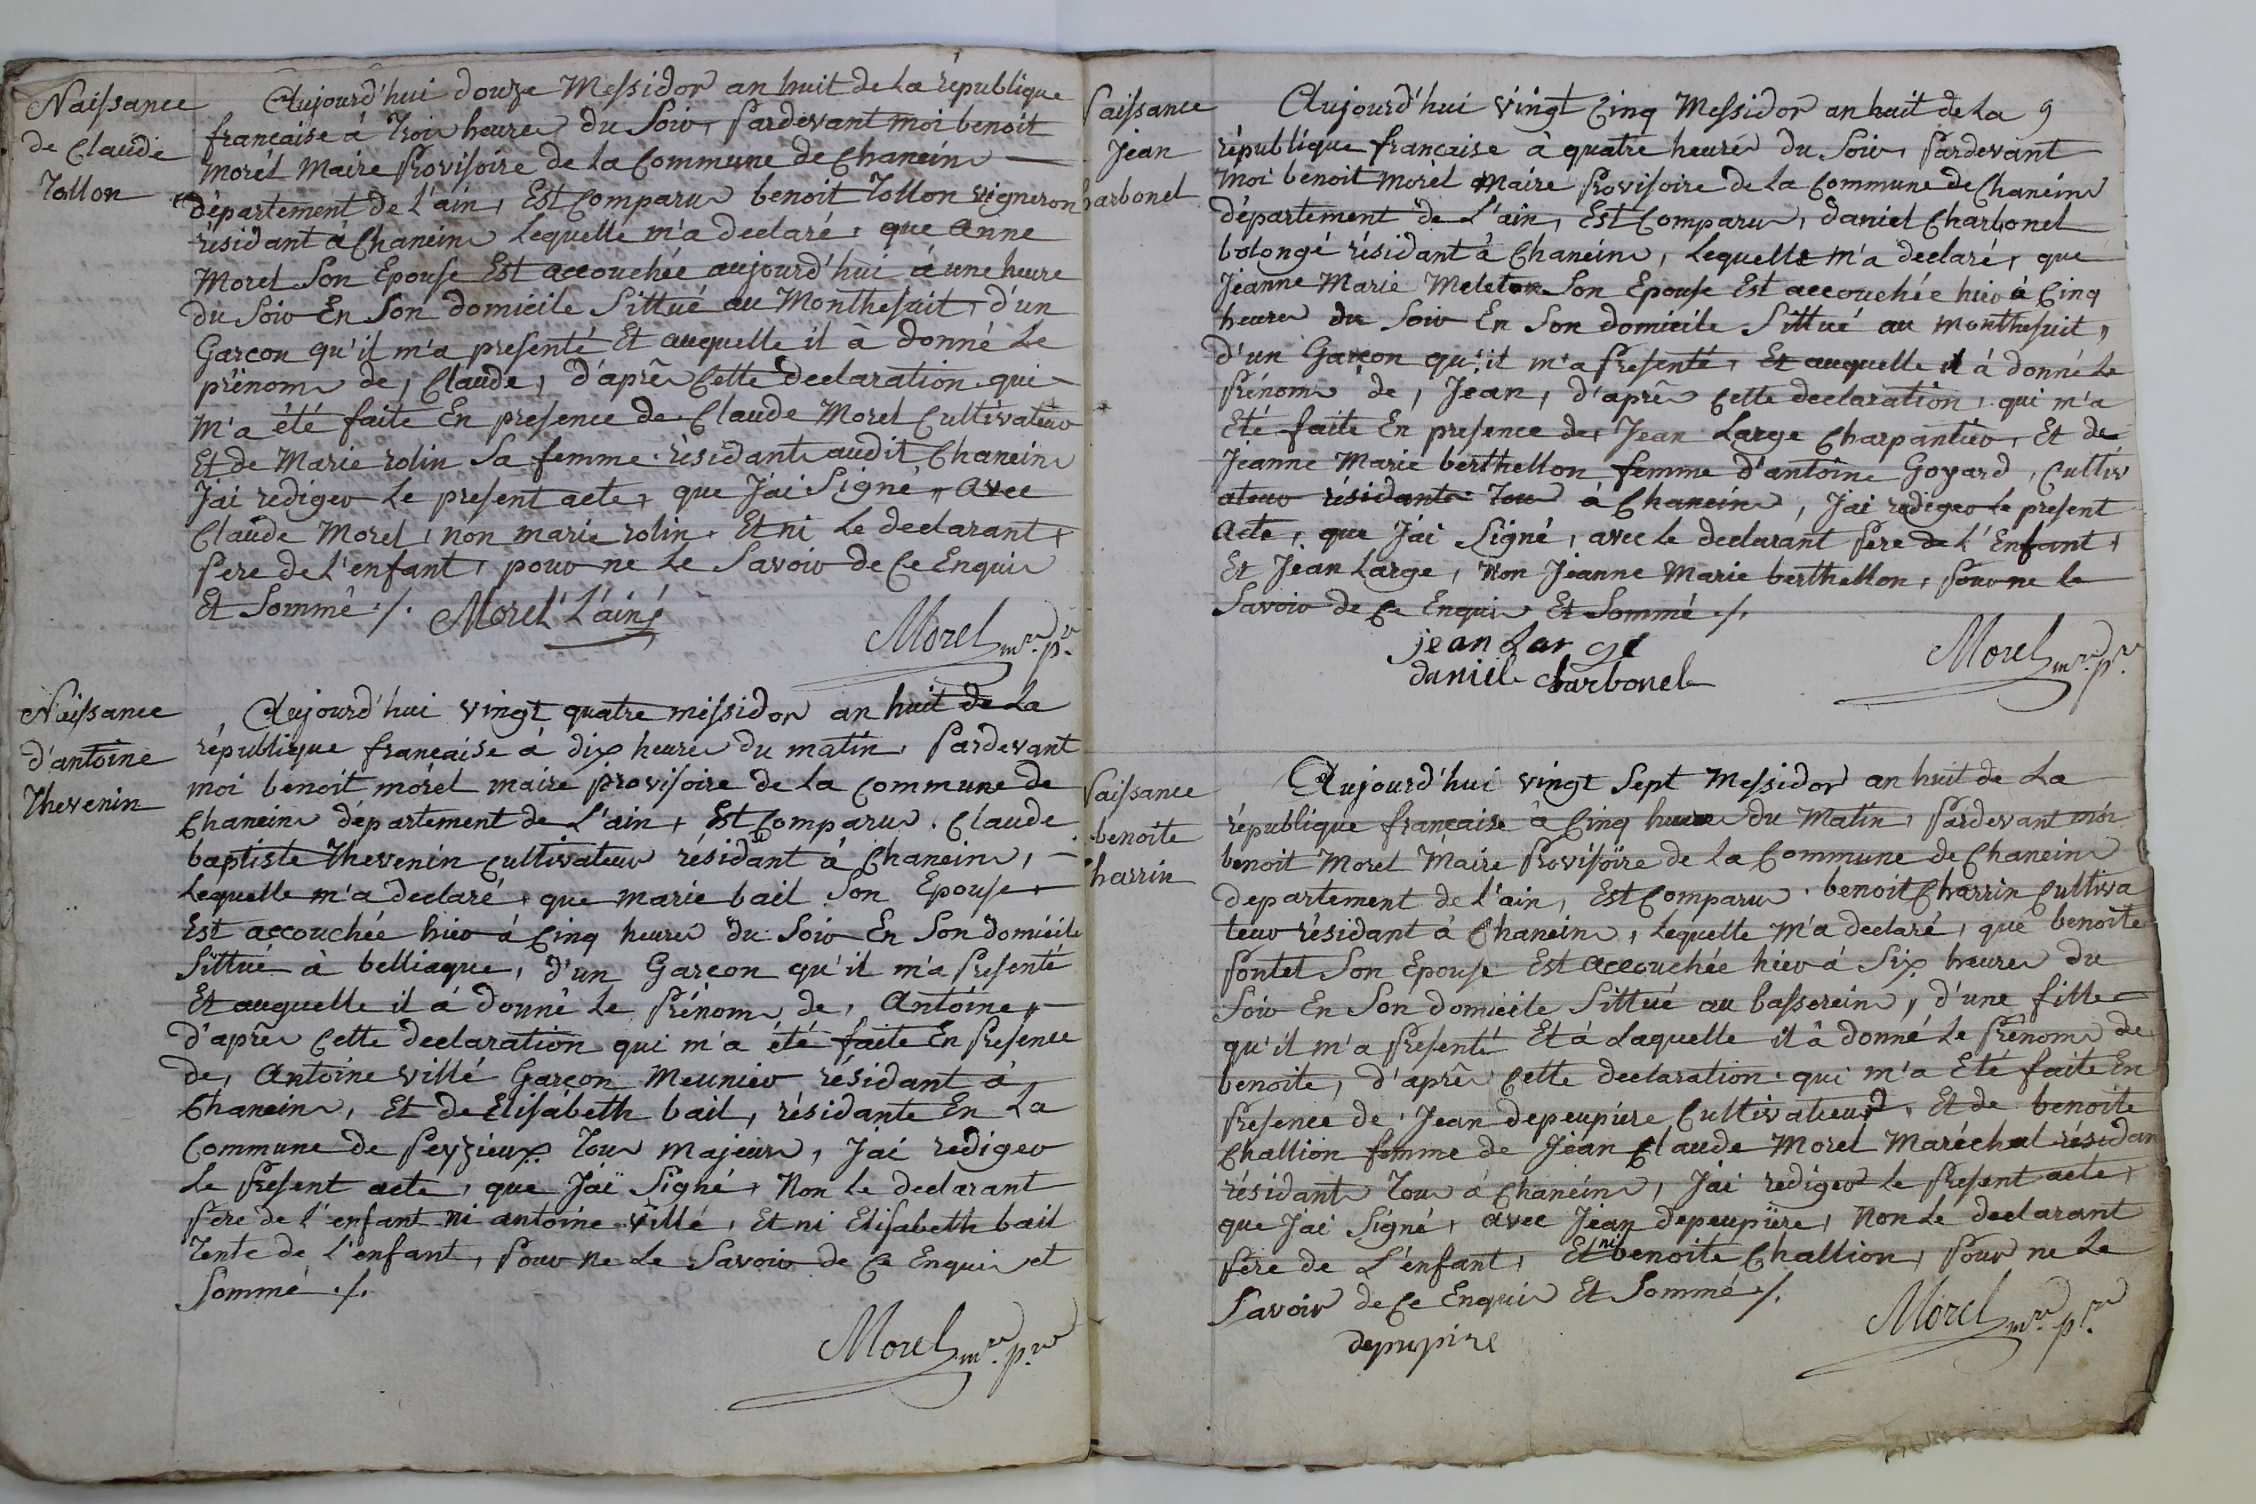 Naissance
de Claude
Tollon
Aujourd'hui douze Messidor an huit de La république
française à trois heures du Soir, pardevant moi benoit
morel Maire provisoire de la Commune de Chanein
département de l'ain, Est Comparu benoit Tollon vigneron
résidant à Chanein Lequelle m'a declaré, que Anne
Morel Son Epouse Est accouchée aujourd'hui à une heure
du Soir En Son domicile Sittué au Monthesuit, d'un
Garcon qu'il m'a presenté Et auquelle il à donné Le
prénom de, Claude, d'après Cette declaration qui
M'a été faite En presence de Claude Morel Cultivateur
Et de Marie rolin Sa femme résidants audit Chanein
J'ai rediger Le present acte, que J'ai Signé, Avec
Claude Morel, non marie rolin, Et ni Le declarant,
pere de L'enfant, pour ne Le Savoir de Ce Enquis
Et Sommé ./. Morel L'ainé
Morel mre. pre.
Naissance
d'antoine
Thevenin
Aujourd'hui vingt quatre messidor an huit de La
république française à dix heures du matin, pardevant
moi benoit morel maire provisoire de la Commune de
Chanein département de L'ain, Est Comparu, Claude
baptiste Thevenin Cultivateur résidant à Chanein,
Lequelle m'a declaré, que marie bail Son Epouse
Est accouchée hier à Cinq heures du Soir En Son domicile
Sittué à belliaque, d'un Garcon qu'il m'a presenté
Et auquelle il à donné Le prénom de, Antoine,
d'après Cette declaration qui m'a été faite En presence
de, Antoine villé Garçon Meunier résidant à
Chanein, Et de Elisabeth bail, résidante En La
Commune de peyzieux Tous majeurs, J'ai rediger
Le present acte, que J'ai Signé, Non Le declarant
pere de l'enfant ni antoine villé, Et ni Elisabeth bail
Tente de L'enfant, pour ne Le Savoir de Ce Enquis et
Sommé ./.
Morel mre. pre.
Naissance
Jean
harbonel
Aujourd'hui vingt Cinq Messidor an huit de La 9
république française à quatre heures du Soir, pardevant
moi benoit morel Maire provisoire de la Commune de Chanein
département de L'ain, Est Comparu, daniel Charbonel
bolongé résidant à Chanein, Lequelle m'a declaré, que
Jeanne Marie Meleton Son Epouse Est accouchée hier à Cinq
heures du Soir En Son domicile Sittué au monthesuit,
d'un Garçon qu'il m'a presenté, Et auquelle il à donné Le
prénom de, Jean, d'après Cette declaration, qui m'a
Eté faite En presence de, Jean Large Charpantier, Et de
Jeanne Marie berthellon femme d'antoine Goyard, Cultiv
ateur résidants Tous à Chanein, J'ai rediger Le present
Acte, que J'ai Signé, avec Le declarant pere de L'Enfant,
Et Jean Large, Non Jeanne Marie berthellon, pour ne le
Savoir de Ce Enquis Et Sommé ./.
jean Large
daniel charbonel
Morel mre. pre.
Naissance
benoite
harrin
Aujourd'hui vingt Sept Messidor an huit de La
république française à Cinq heures du Matin, pardevant moi
benoit Morel Maire provisoire de la Commune de Chanein
departement de l'ain, Est Comparu, benoit Charrin Cultiva
teur résidant à Chanein, Lequelle m'a declaré, que benoite
pontet Son Epouse Est accouchée hier à Six heures du
Soir En Son domicile Sittué au basserein, d'une fille
qu'il m'a presenté Et à Laquelle il à donné Le prénom de
benoite, d'après Cette declaration, qui m'a Eté faite En
presence de, Jean depeupiere Cultivateur, Et de benoite
Challion femme de Jean Claude Morel Maréchal résidan
résidants Tous à Chanein, J'ai rediger Le present acte,
que J'ai Signé, avec Jean depeupiere, Non Le declarant
pere de L'enfant, Et ni benoite Challion, pour ne Le
Savoir de Ce Enquis Et Sommé ./.
depupire
Morel mre. pre.